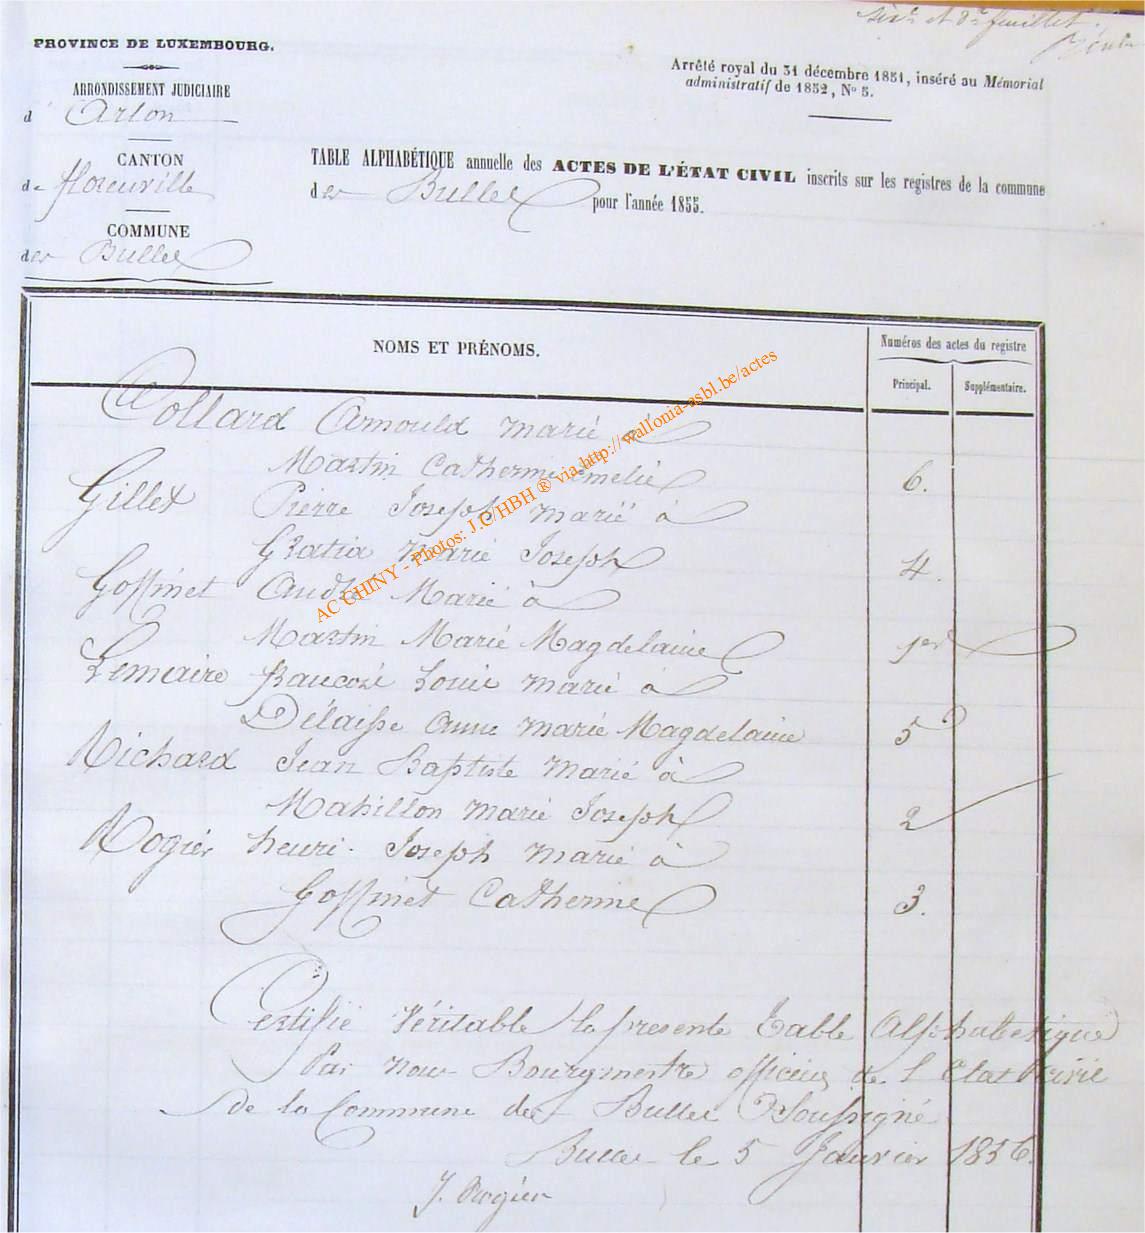 et 3e feuillet.
PROVINCE DE LUXEMBOURG.
Arrêté royal du 31 décembre 1851, inséré au Mémorial
administratif de 1852, No 5.
ARRONDISSEMENT JUDICIAIRE
d' Arlon
CANTON
de florenville
TABLE ALPHABÉTIQUE annuelle des ACTES DE L'ÉTAT CIVIL inscrits sur les registres de la commune
de Bulles pour l'année 1855.
COMMUNE
de Bulles
NOMS ET PRÉNOMS.
Numéros des actes du registre
Principal.
Supplémentaire.
Collard Arnould marié à
Martin Catherine Emelie 6.
Gillet Pierre Joseph marié à
Gratia Marie Joseph 4.
Goffinet André Marié à
Martin Marie Magdelaine 1er
Lemaire francois Louis marié à
Délaisse Anne marie Magdelaine 5
Richard Jean Baptiste marié à
Mahillon marie Joseph 2
Rogier henri Joseph marié à
Goffinet Catherine 3.
Certifié Véritable la presente Table Alphabetique
Par nous Bourgmestre officier de l'Etat civil
de la Commune de Bulles Soussigné
Bulles le 5 Janvier 1856.
J. Rogier
AC CHINY - Photos: J.C/HBH ® via http://wallonia-asbl.be/actes